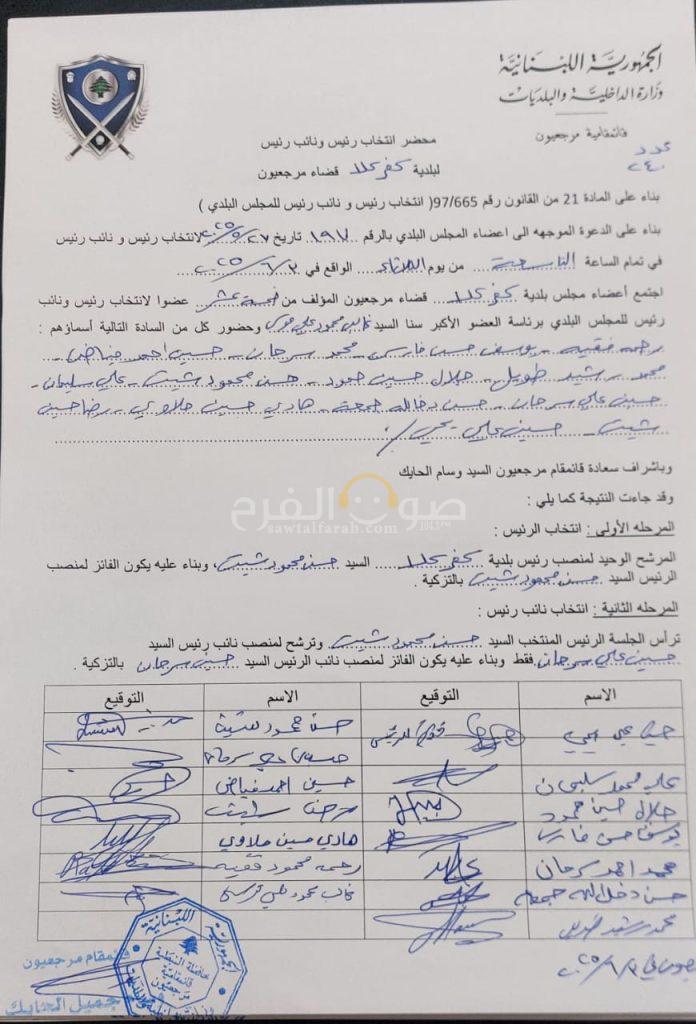 الجمهورية اللبنانية
وزارة الداخلية والبلديات
قائمقامية مرجعيون
عدد
٢٤٠
محضر انتخاب رئيس ونائب رئيس
لبلدية كفركلا قضاء مرجعيون
بناء على المادة 21 من القانون رقم 97/665( انتخاب رئيس و نائب رئيس للمجلس البلدي )
بناء على الدعوة الموجهه الى اعضاء المجلس البلدي بالرقم ١٩٧ تاريخ ٢٠٢٥/٥/٢٧ لانتخاب رئيس و نائب رئيس
في تمام الساعة التاسعة من يوم الثلاثاء الواقع في ٢٠٢٥/٦/٣
اجتمع أعضاء مجلس بلدية كفركلا قضاء مرجعيون المؤلف من خمسة عشر عضوا لانتخاب رئيس ونائب
رئيس للمجلس البلدي برئاسة العضو الأكبر سنا السيد غالب محمود علي موسى وحضور كل من السادة التالية أسماؤهم :
رحمه فقيه - يوسف حسن فارس - محمد سرحان - حسين احمد فياض -
محمد رشيد طويل - جلال حسين حمود - حسن محمود شيت - علي سليمان -
حسين علي سرحان - حسن دخل الله جمعة - هادي حسين حلاوي - رضا حسين
شيت - حسين علي يحيى /.
وباشراف سعادة قائمقام مرجعيون السيد وسام الحايك
وقد جاءت النتيجة كما يلي :
صوت الفرح
sawtalfarah.com
المرحله الأولى : انتخاب الرئيس :
المرشح الوحيد لمنصب رئيس بلدية كفركلا السيد حسن محمود شيت، وبناء عليه يكون الفائز لمنصب
الرئيس السيد حسن محمود شيت بالتزكية .
المرحله الثانية : انتخاب نائب رئيس :
ترأس الجلسة الرئيس المنتخب السيد حسن محمود شيت وترشح لمنصب نائب رئيس السيد
حسين علي سرحان فقط وبناء عليه يكون الفائز لمنصب نائب الرئيس السيد حسين سرحان بالتزكية .
الاسم التوقيع الاسم التوقيع
حسين علي يحيى حسن محمود شيت
حسين علي سرحان
علي محمد سليمان حسين احمد فياض
جلال حسين حمود رضا شيت
يوسف حسن فارس هادي حسين حلاوي
محمد احمد سرحان رحمه محمود فقيه
حسن دخل الله جمعة غالب محمود علي موسى
محمد رشيد طويل
الجمهورية اللبنانية
محافظة النبطية
قائمقامية
مرجعيون
قائمقام مرجعيون
جميل الحايك